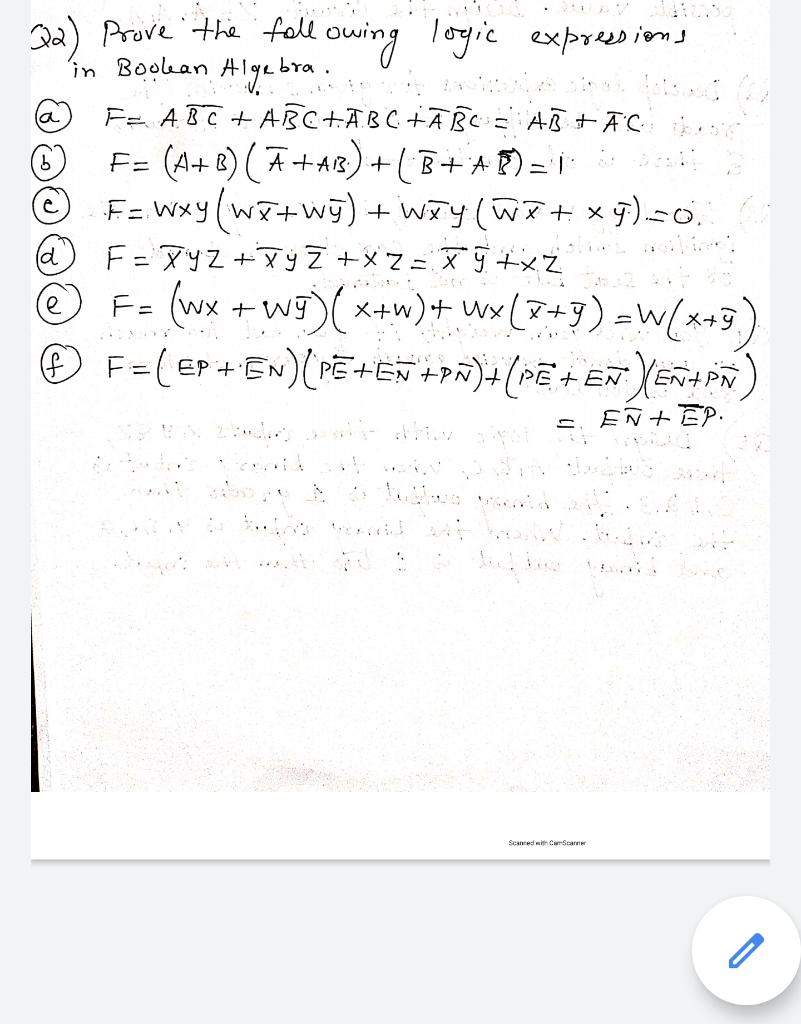 Q2) Prove the following logic expressions
in Boolean Algebra.
(a) F = A B̅ C̅ + A B̅ C + A̅ B C + A̅ B̅ C = A B̅ + A̅ C
(b) F = (A+B)(A̅ + AB) + (B̅ + A B̅) = 1
(c) F = Wxy(Wx̅ + Wy̅) + Wx̅y(W̅x̅ + xy̅) = 0.
(d) F = x̅ y̅ z + x̅ y̅ z̅ + x z = x̅ y̅ + x z
(e) F = (Wx + Wy̅)(x + w) + Wx(x̅ + y̅) = W(x + y̅)
(f) F = (EP + E̅N)(PE̅ + EN̅ + PN̅) + (PE̅ + EN̅)(EN̅ + PN̅)
= EN̅ + E̅P.
Scanned with CamScanner